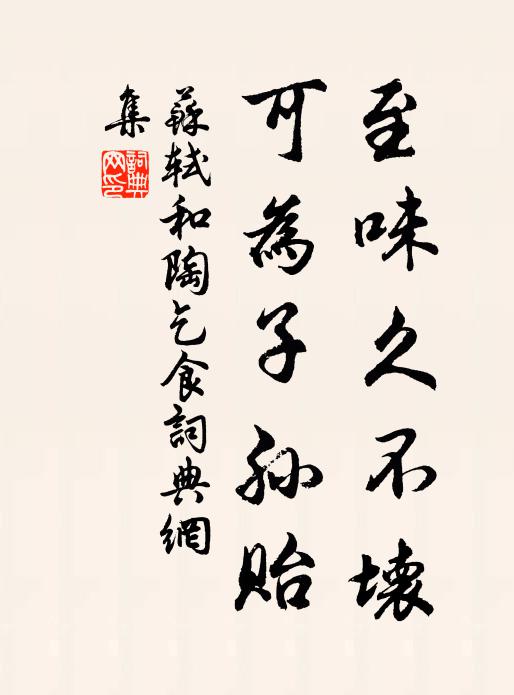 至味久不壞
可為子孫貽
蘇軾和陶乞食詞典網
集
詞典網印